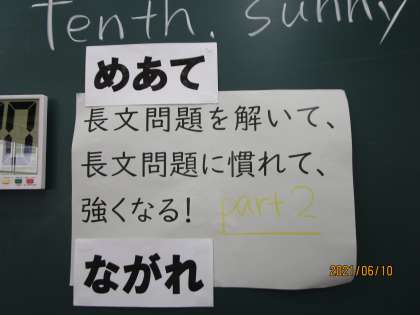 tenth, sunny
めあて
長文問題を解いて、
長文問題に慣れて、
強くなる! part 2
ながれ
2021/06/10